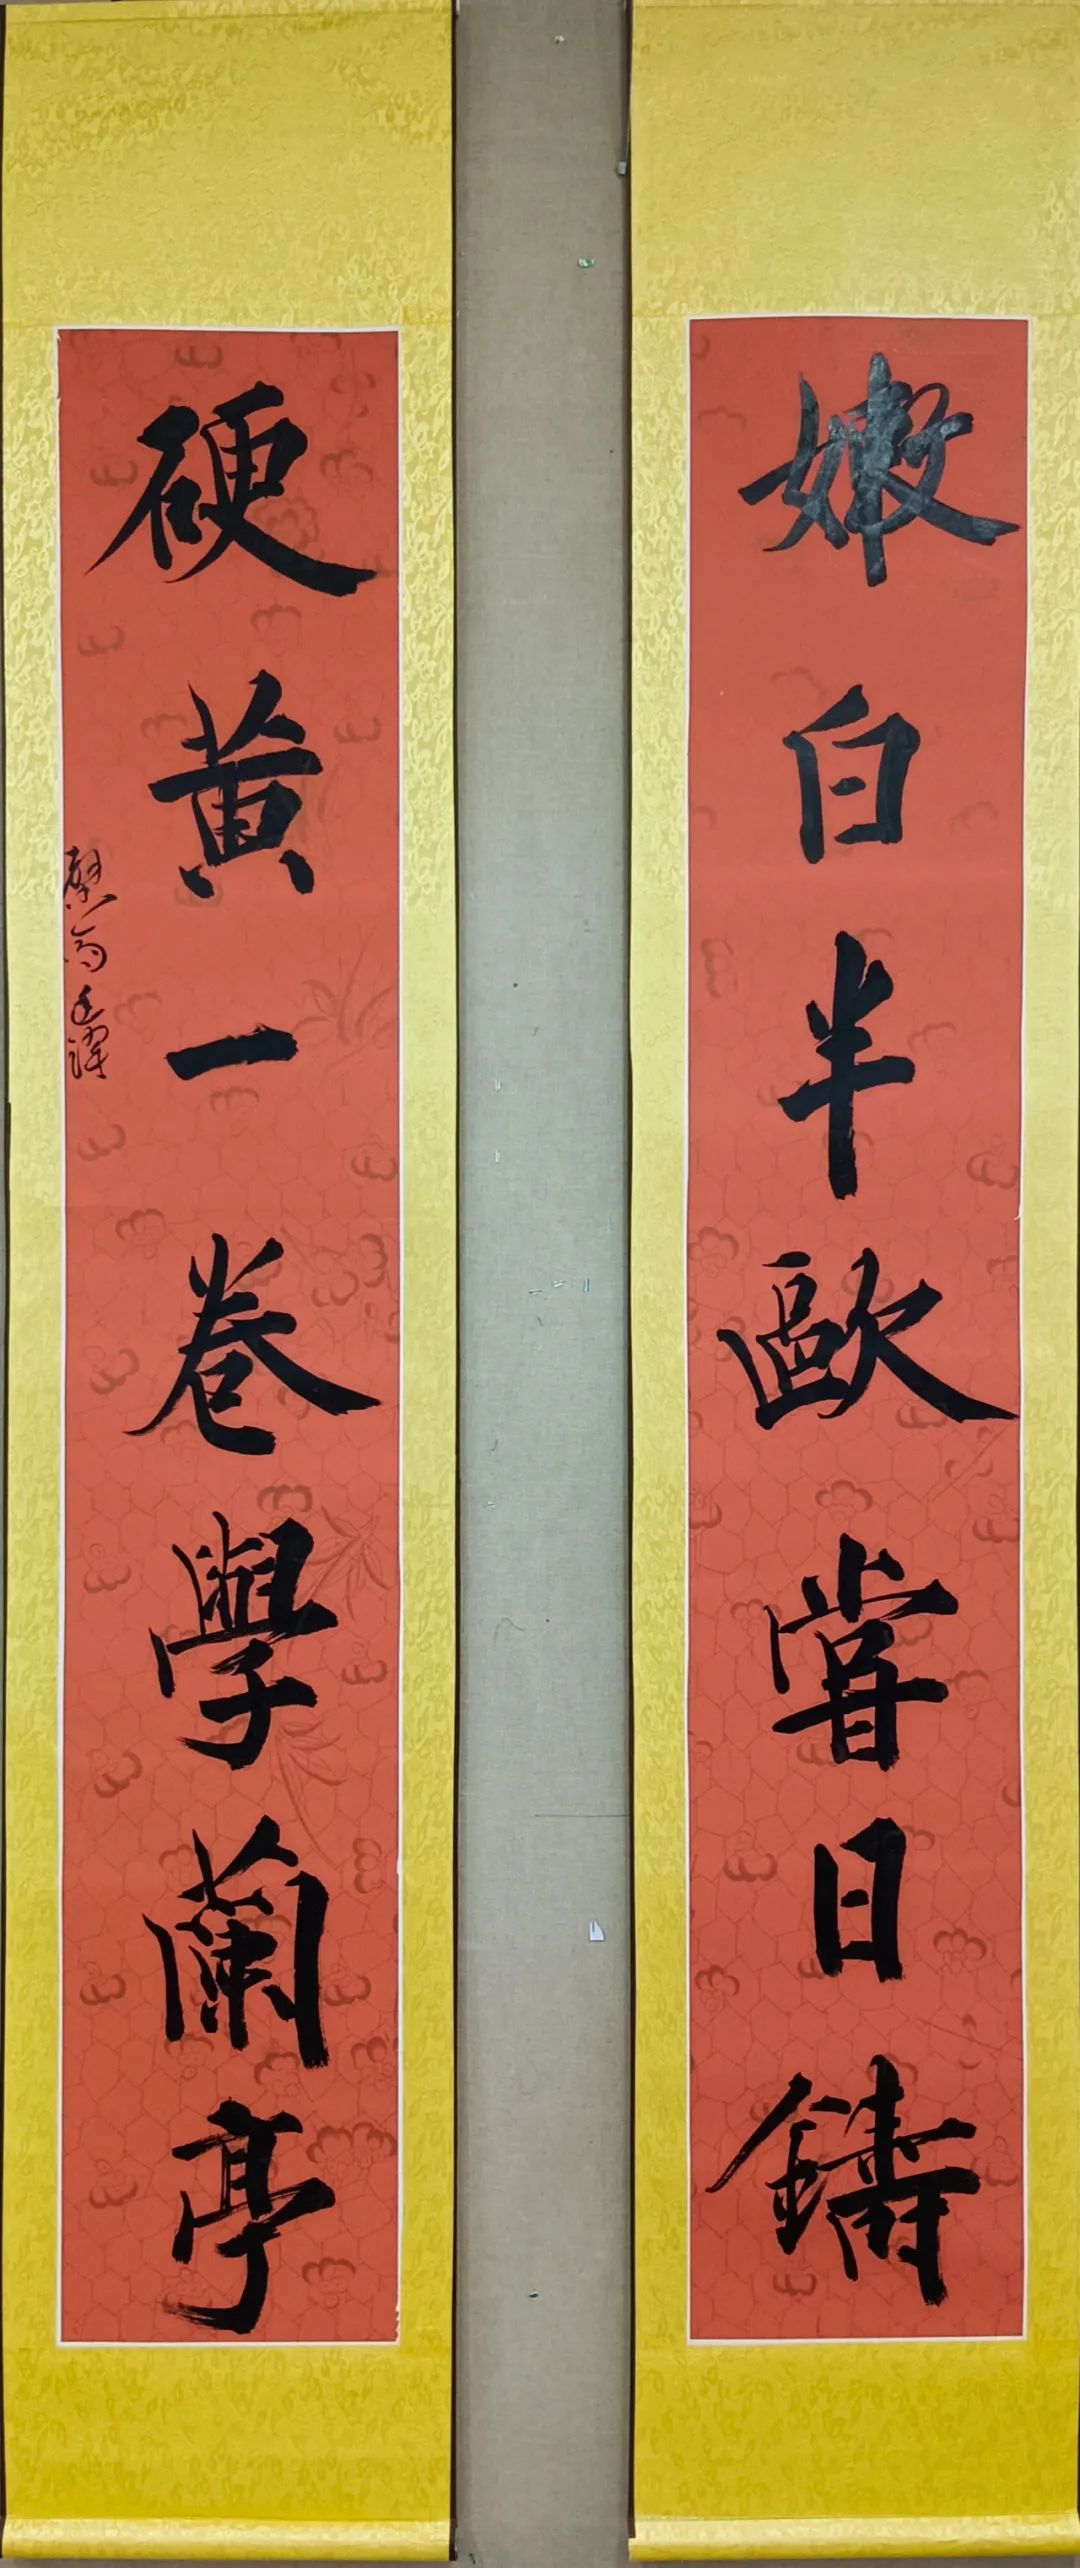 嫰白半歐嘗日鑄
硬黃一卷學蘭亭